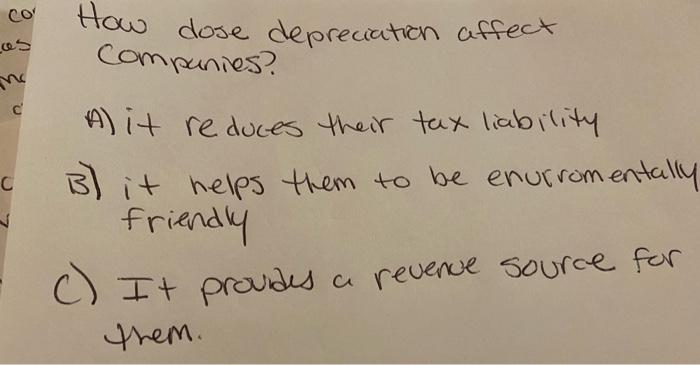 How dose depreciation affect
Companies?
A) it reduces their tax liability
B) it helps them to be enviromentally
friendly
C) It provides a revenue source for
them.